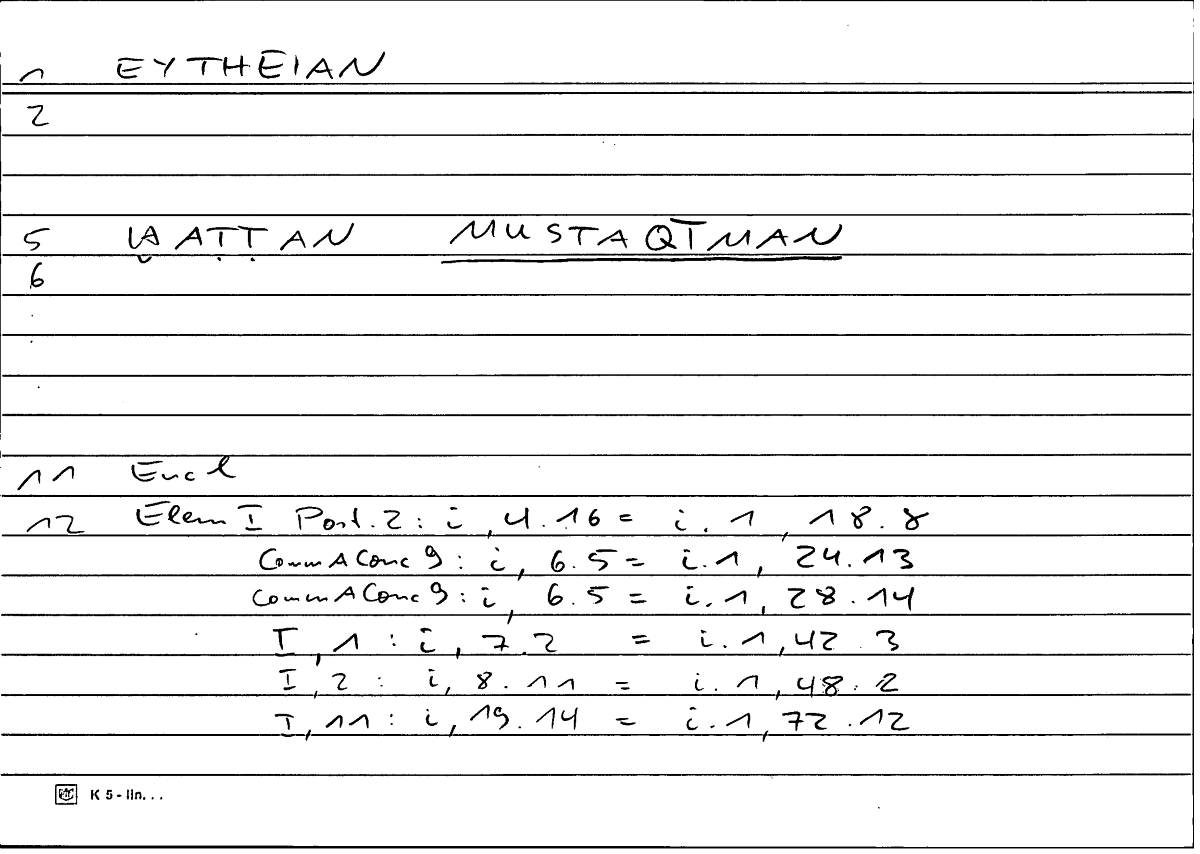 1 EYTHEIAN
2
5 ḪAṬṬAN MUSTAQĪMAN
6
11 Eucl
12 Elem I Post. 2 : i, 4.16 = i.1, 18.8
Comm A Conc 9 : i, 6.5 = i.1, 24.13
Comm A Conc 9 : i, 6.5 = i.1, 28.14
I, 1 : i, 7.2 = i.1, 42 3
I, 2 : i, 8.11 = i.1, 48.2
I, 11 : i, 19.14 = i.1, 72.12
K 5 - lin. . .